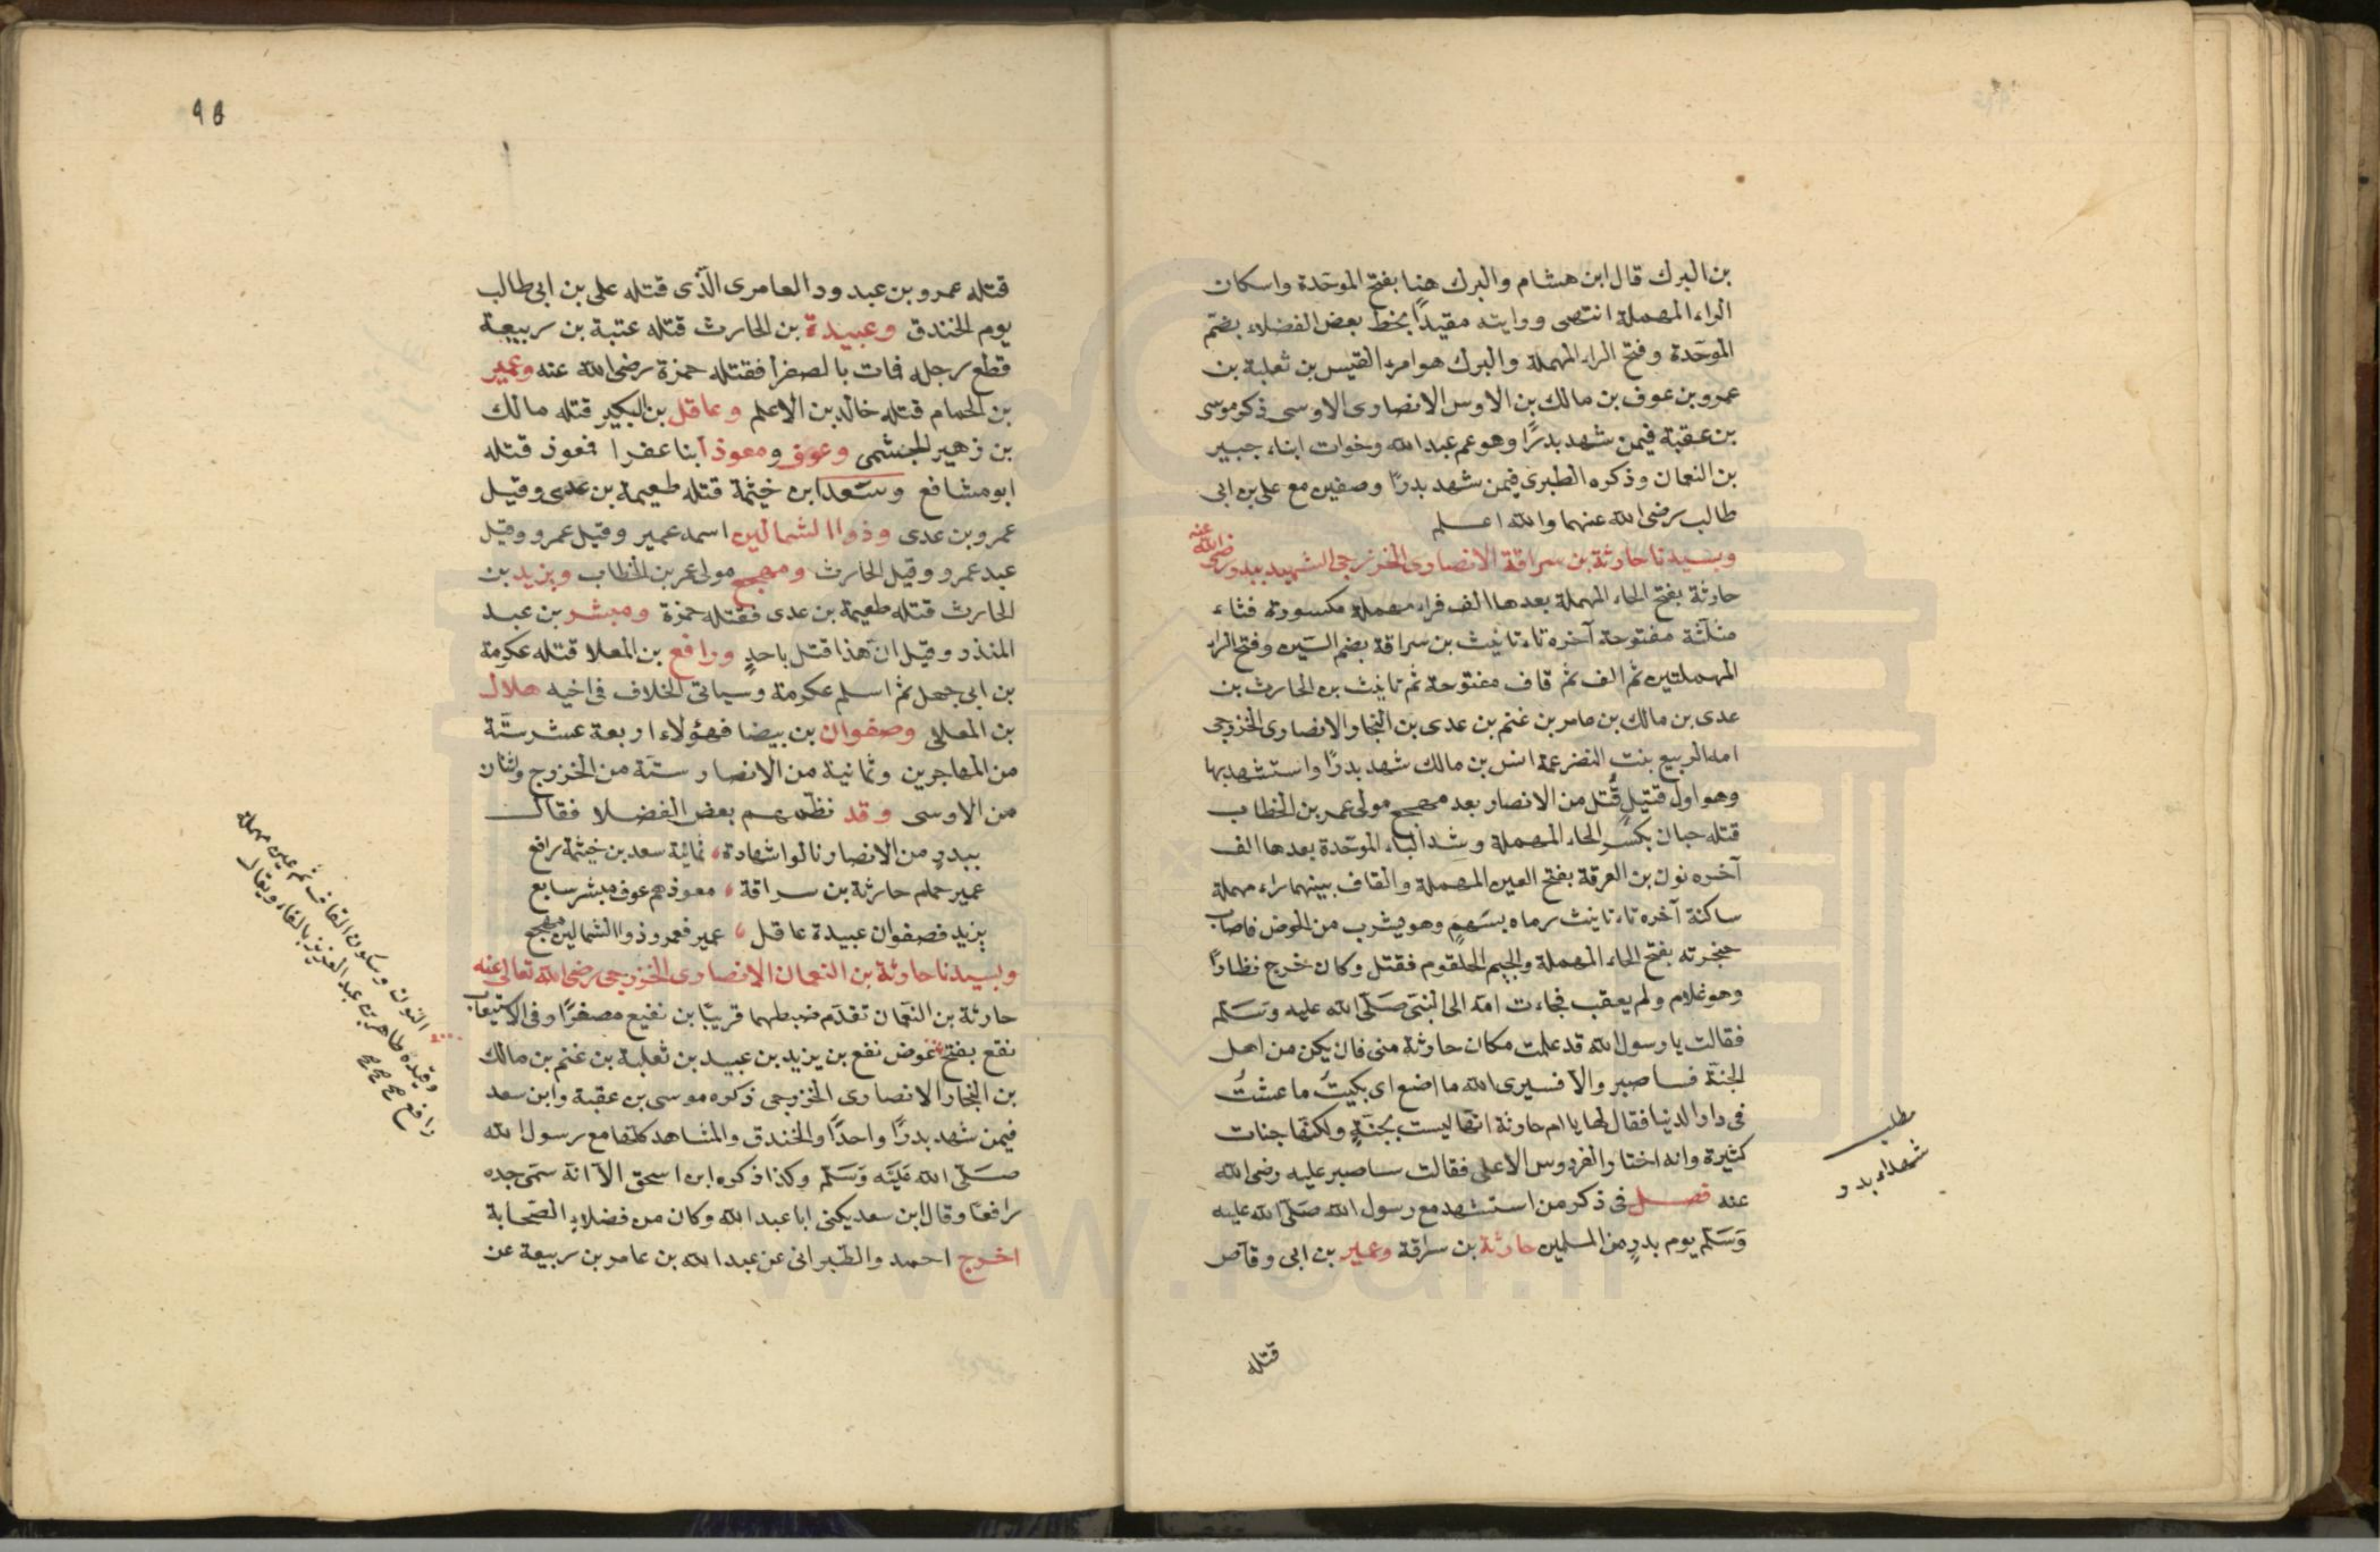 بن البرك قال ابن هشام والبرك هنا بفتح الموحّدة واسكان
الراء المهملة انتهى ورايته مقيدًا بخط بعض الفضلاء بضمّ
الموحّدة وفتح الراء المهملة والبرك هو امرء القيس بن ثعلبة بن
عمرو بن عوف بن مالك بن الاوس الانصارى الاوسى ذكره موسى
بن عقبة فيمن شهد بدرًا وهو عم عبد الله وخوات ابناء جبير
بن النعمان وذكره الطبرى فيمن شهد بدرًا وصفين مع على بن ابى
طالب رضى الله عنهما والله اعلم
وبسيدنا حارثة بن سراقة الانصارى الخزرجى الشهيد ببدر رضى الله عنه
حارثة بفتح الحاء المهملة بعدها الف فراء مهملة مكسورة فثاء
مثلّثة مفتوحة آخره تاء تانيث بن سراقة بضم السّين وفتح الراء
المهملتين ثم الف ثم قاف مفتوحة ثم تانيث بن الحارث بن
عدى بن مالك بن عامر بن غنم بن عدى بن النجار الانصارى الخزرجى
امه الربيع بنت النضر عمة انس بن مالك شهد بدرًا واستشهد بها
وهو اول قتيلٍ قُتل من الانصار بعد مهجع مولى عمر بن الخطاب
قتله حبان بكسر الحاء المهملة وشد الباء الموحّدة بعدها الف
آخره نون بن العرقة بفتح العين المهملة والقاف بينهما راء مهملة
ساكنة آخره تاء تانيث رماه بسَهمٍ وهو يشرب من الحوض فاصاب
حنجرته بفتح الحاء المهملة والجيم الحلقوم فقتل وكان خرج نظارًا
وهو غلام ولم يعقب فجاءت امّه الى النبى صَلّى الله عليه وَسَلّم
فقالت يا رسول الله قد علمت مكان حارثة منى فان يكن من اهل
الجنّة فساصبر والّا فسيرى الله ما اصنع اى بكيتُ ما عشتُ
فى دار الدنيا فقال لها يا ام حارثة انّها ليست بجنّةٍ ولكنّها جنات
كثيرة وانه اختار الفردوس الاعلى فقالت ساصبر عليه رضى الله
عنه فصل فى ذكر من استشهد مع رسول الله صَلّى الله عليه
وَسَلّم يوم بدرٍ من المسلمين حارثة بن سراقة وعمير بن ابى وقاص
مطلب
شهداء بدر
قتله
٩٥
قتله عمرو بن عبد ود العامرى الّذى قتله على بن ابى طالب
يوم الخندق وعبيدة بن الحارث قتله عتبة بن ربيعة
قطع رجله فمات بالصفرا فقتله حمزة رضى الله عنه وعمير
بن الحمام قتله خالد بن الاعلم وعاقل بن البكير قتله مالك
بن زهير الجشمى وعوف ومعوذ ابنا عفرا فعوذ قتله
ابو مشافع وسَعد ابن خيثمة قتله طعيمة بن عدى وقيل
عمرو بن عدى وذوا الشمالين اسمه عمير وقيل عمرو وقيل
عبد عمرو وقيل الحارث ومهجع مولى عمر بن الخطاب ويزيد بن
الحارث قتله طعيمة بن عدى فقتله حمزة ومبشر بن عبد
المنذر وقيل انّ هذا قتل باحدٍ ورافع بن المعلا قتله عكرمة
بن ابى جهل ثم اسلم عكرمة وسياتى الخلاف فى اخيه هلال
بن المعلى وصفوان بن بيضا فهؤلاء اربعة عشر ستّة
من المهاجرين وثمانية من الانصار ستّة من الخزرج واثنان
من الاوسى وقد نظّمهم بعض الفضلا فقال
ببدرٍ من الانصار نالوا شهادة، ثمانية سعد بن خيثمة رافع
عمير حمام حارثة بن سراقة، معوذهم عوف مبشر سابع
يزيد فصفوان عبيدة عاقل، عمير فعمرو ذوا الشمالين مهجع
وبسيدنا حارثة بن النعمان الانصارى الخزرجى رضى الله تعالى عنه
حارثة بن النعمان تقدّم ضبطهما قريبًا بن نفيع مصغرًا وفى الاستيعاب
نقع بفتح عوض نفع بن يزيد بن عبيد بن ثعلبة بن غنم بن مالك
بن النجار الانصارى الخزرجى ذكره موسى بن عقبة وابن سعد
فيمن شهد بدرًا واحدًا والخندق والمشاهد كلها مع رسول الله
صَلّى الله عَليَه وَسَلّم وكذا ذكره ابن اسحق الّا انّه سمّى جده
رافعًا وقال ابن سعد يكنى ابا عبد الله وكان من فضلاءِ الصّحابة
اخرج احمد والطّبرانى عن عبد الله بن عامر بن ربيعة عن
النون وسكون القاف ثم عين مهملة
وقيده طاهر بن عبد العزيز بالفاء ويقال
رافع صح صح صح